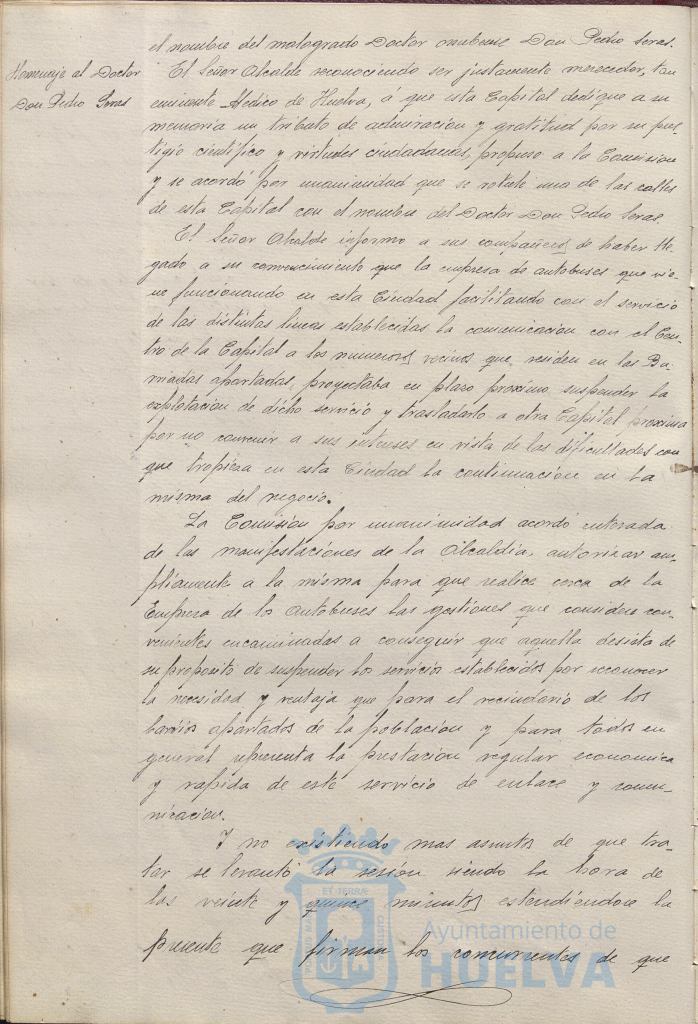 Homenaje al Doctor
Don Pedro Seras
el nombre del malogrado Doctor onubense Don Pedro Seras.
El Señor Alcalde reconociendo ser justamente merecedor, tan
eminente Médico de Huelva, á que esta Capital dedique a su
memoria un tributo de admiracion y gratitud por su pres-
tigio científico y virtudes ciudadanas, propuso a la Comision
y se acordó por unanimidad que se rotule una de las calles
de esta Capital con el nombre del Doctor Don Pedro Seras.
El Señor Alcalde informo a sus compañeros de haber lle-
gado a su convencimiento que la empresa de autobuses que vie-
ne funcionando en esta Ciudad facilitando con el servicio
de las distintas lineas establecidas la comunicacion con el Cen-
tro de la Capital a los numerosos vecinos que residen en las Ba-
rriadas apartadas, proyectaba en plazo proximo suspender la
explotacion de dicho servicio y trasladarlo a otra Capital proxima
por no convenir a sus intereses en vista de las dificultades con
que tropieza en esta Ciudad la continuacion en la
misma del negocio.
La Comision por unanimidad acordó enterada
de las manifestaciones de la Alcaldia, autorizar am-
pliamente a la misma para que realice cerca de la
Empresa de los Autobuses las gestiones que considere con-
venientes encaminadas a conseguir que aquella desista de
su proposito de suspender los servicios establecidos por reconocer
la necesidad y ventaja que para el vecindario de los
barrios apartados de la poblacion y para todos en
general representa la prestacion regular economica
y rapida de este servicio de enlace y comu-
nicacion.
Y no existiendo mas asuntos de que tra-
tar se levantó la sesión siendo la hora de
las veinte y quince minutos estendiendose la
presente que firman los concurrentes de que
Ayuntamiento de
HUELVA